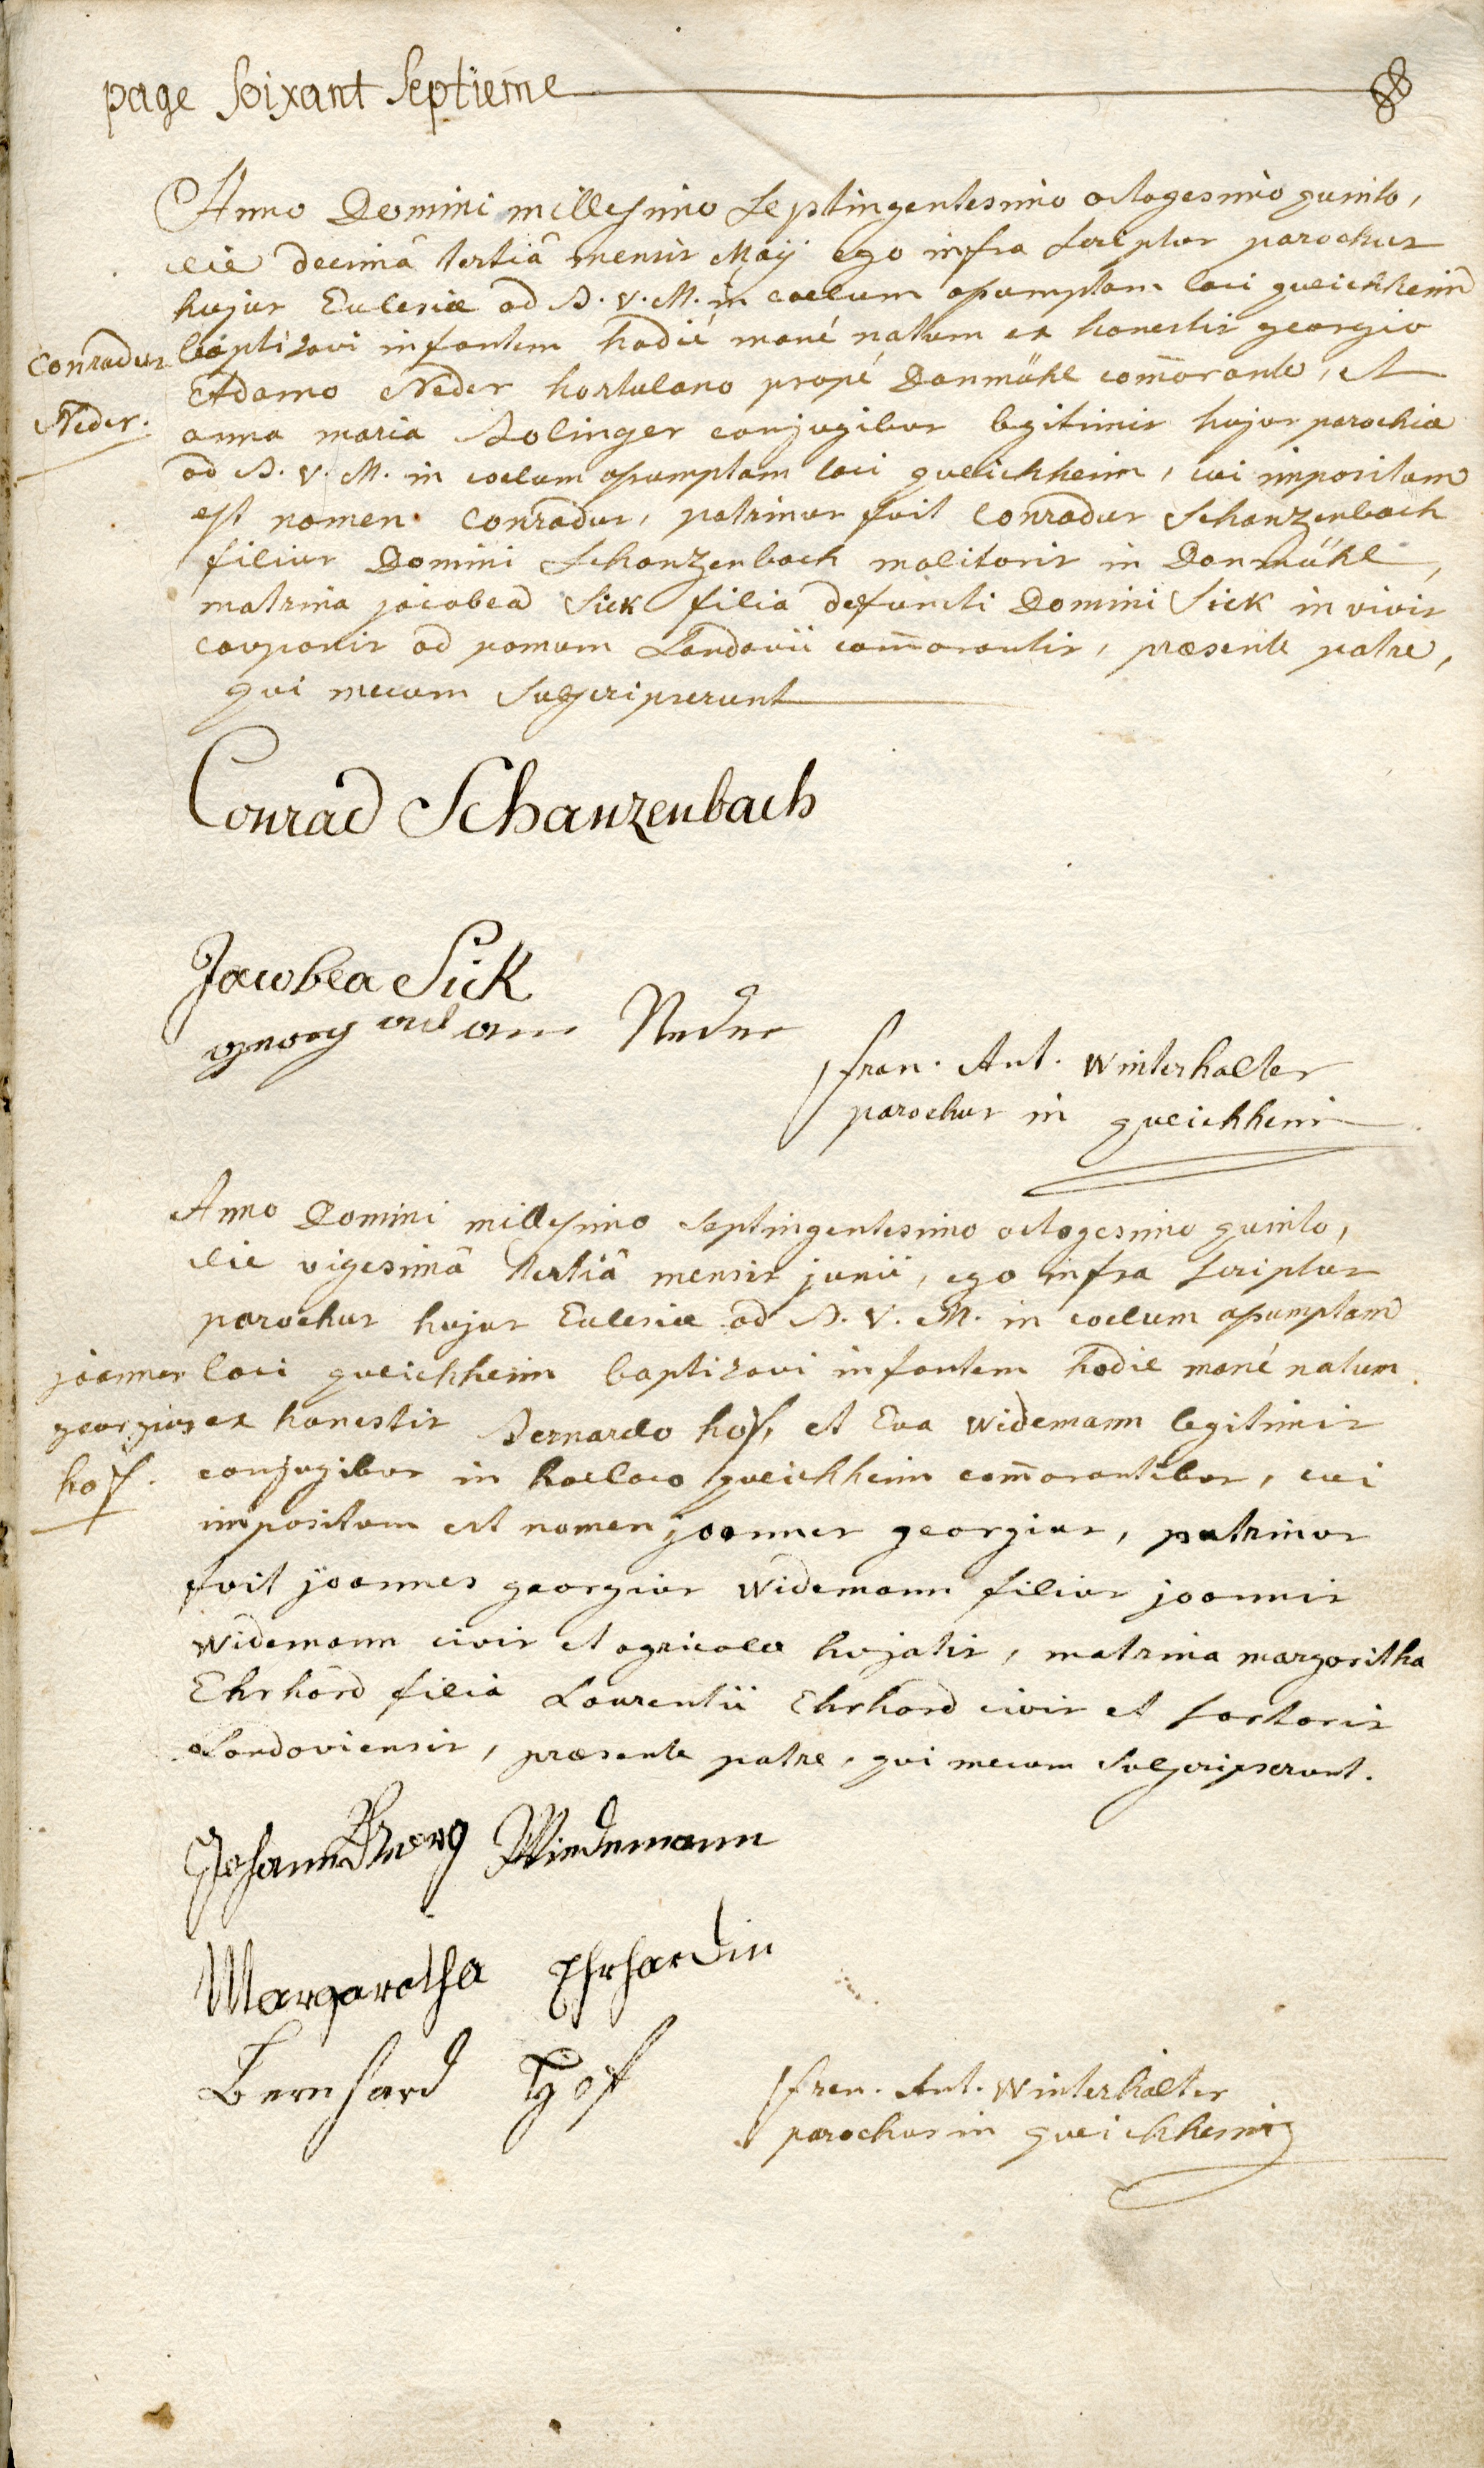 page soixant septieme
Anno Domini millesimo septingentesimo octogesimo quinto,
die decimâ tertiâ mensis Maÿ ego infra scriptus parochus
hujus Ecclesiæ ad B. V. M. in coelum assumptam loci queichheim
Conradus baptizavi infantem hodié mané natum ex honestis georgio
Adamo Neder hortulano propé Danmühl com̄orante, et
Neder. anna maria Bolinger conjugibus legitimis hujus parochiæ
ad B. V. M. in coelum assumptam loci queichheim, cui impositum
est nomen Conradus, patrinus fuit Conradus Schanzenbach
filius Domini Schanzenbach molitoris in Danmühl,
matrina jacobea Sick filia defuncti Domini Sick in vivis
cauponis ad pomum Landavii com̄orantis, præsente patre,
qui mecum subscripserunt
Conrad Schanzenbach
Jacobea Sick
georg adam Neder
fran. Ant. Winterhalter
parochus in queichheim
Anno Domini millesimo septingentesimo octogesimo quinto,
die vigesimâ tertiâ mensis junii, ego infra scriptus
parochus hujus Ecclesiæ ad B. V. M. in coelum assumptam
joannes loci queichheim baptizavi infantem hodie mané natum
georgius ex honestis Bernardo hoff, et Eva Widemann legitimis
hoff. conjugibus in hoc loco queichheim com̄orantibus, cui
impositum est nomen joannes georgius, patrinus
fuit joannes georgius Widemann filius joannis
Widemann civis et agricolæ hujatis, matrina margaritha
Ehrhard filia Laurentii Ehrhard civis et sartoris
Landaviensis, præsente patre, qui mecum subscripserunt.
Johann Georg Wiedemann
Margaretha Ehrhardin
Bernhard Hof
fran. Ant. Winterhalter
parochus in queichheim